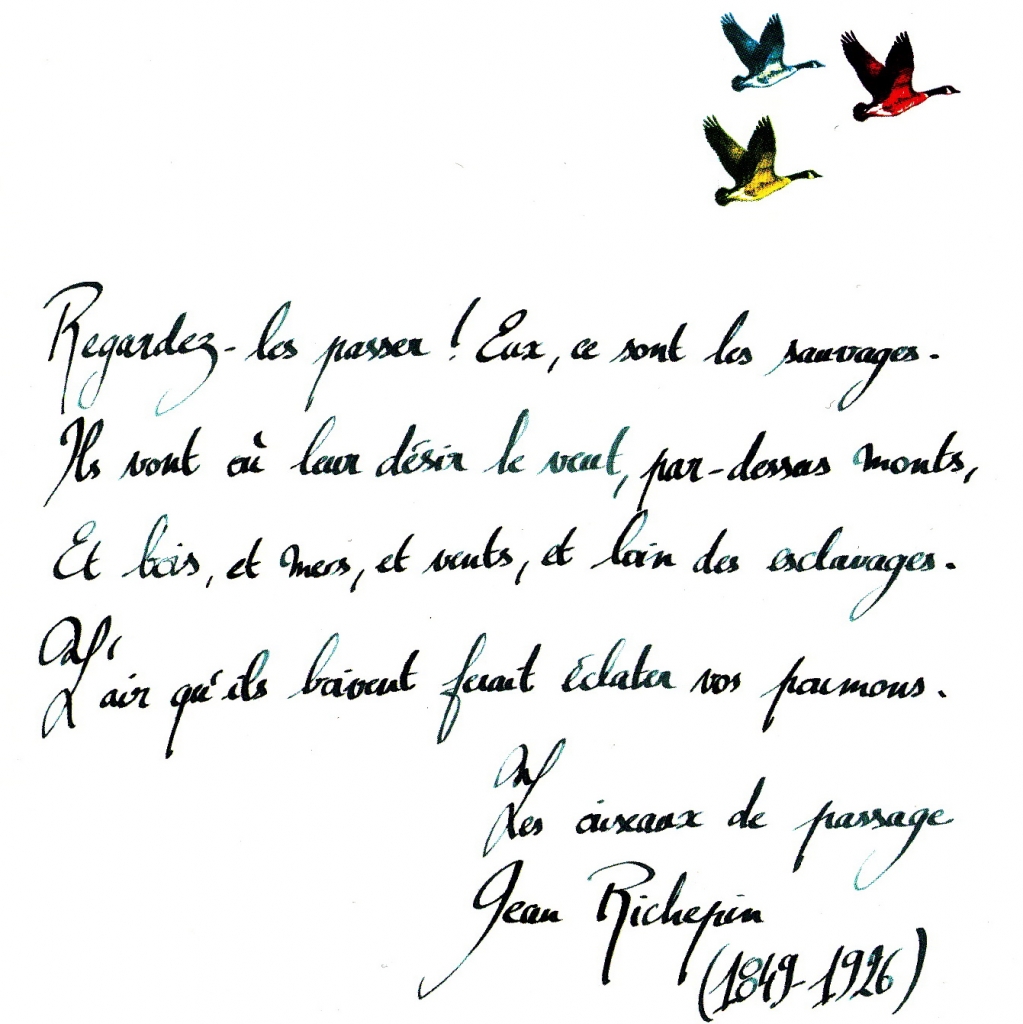 Regardez-les passer ! Eux, ce sont les sauvages.
Ils vont où leur désir le veut, par-dessus monts,
Et bois, et mers, et vents, et loin des esclavages.
L'air qu'ils boivent ferait éclater vos poumons.
Les oiseaux de passage
Jean Richepin
(1849-1926)